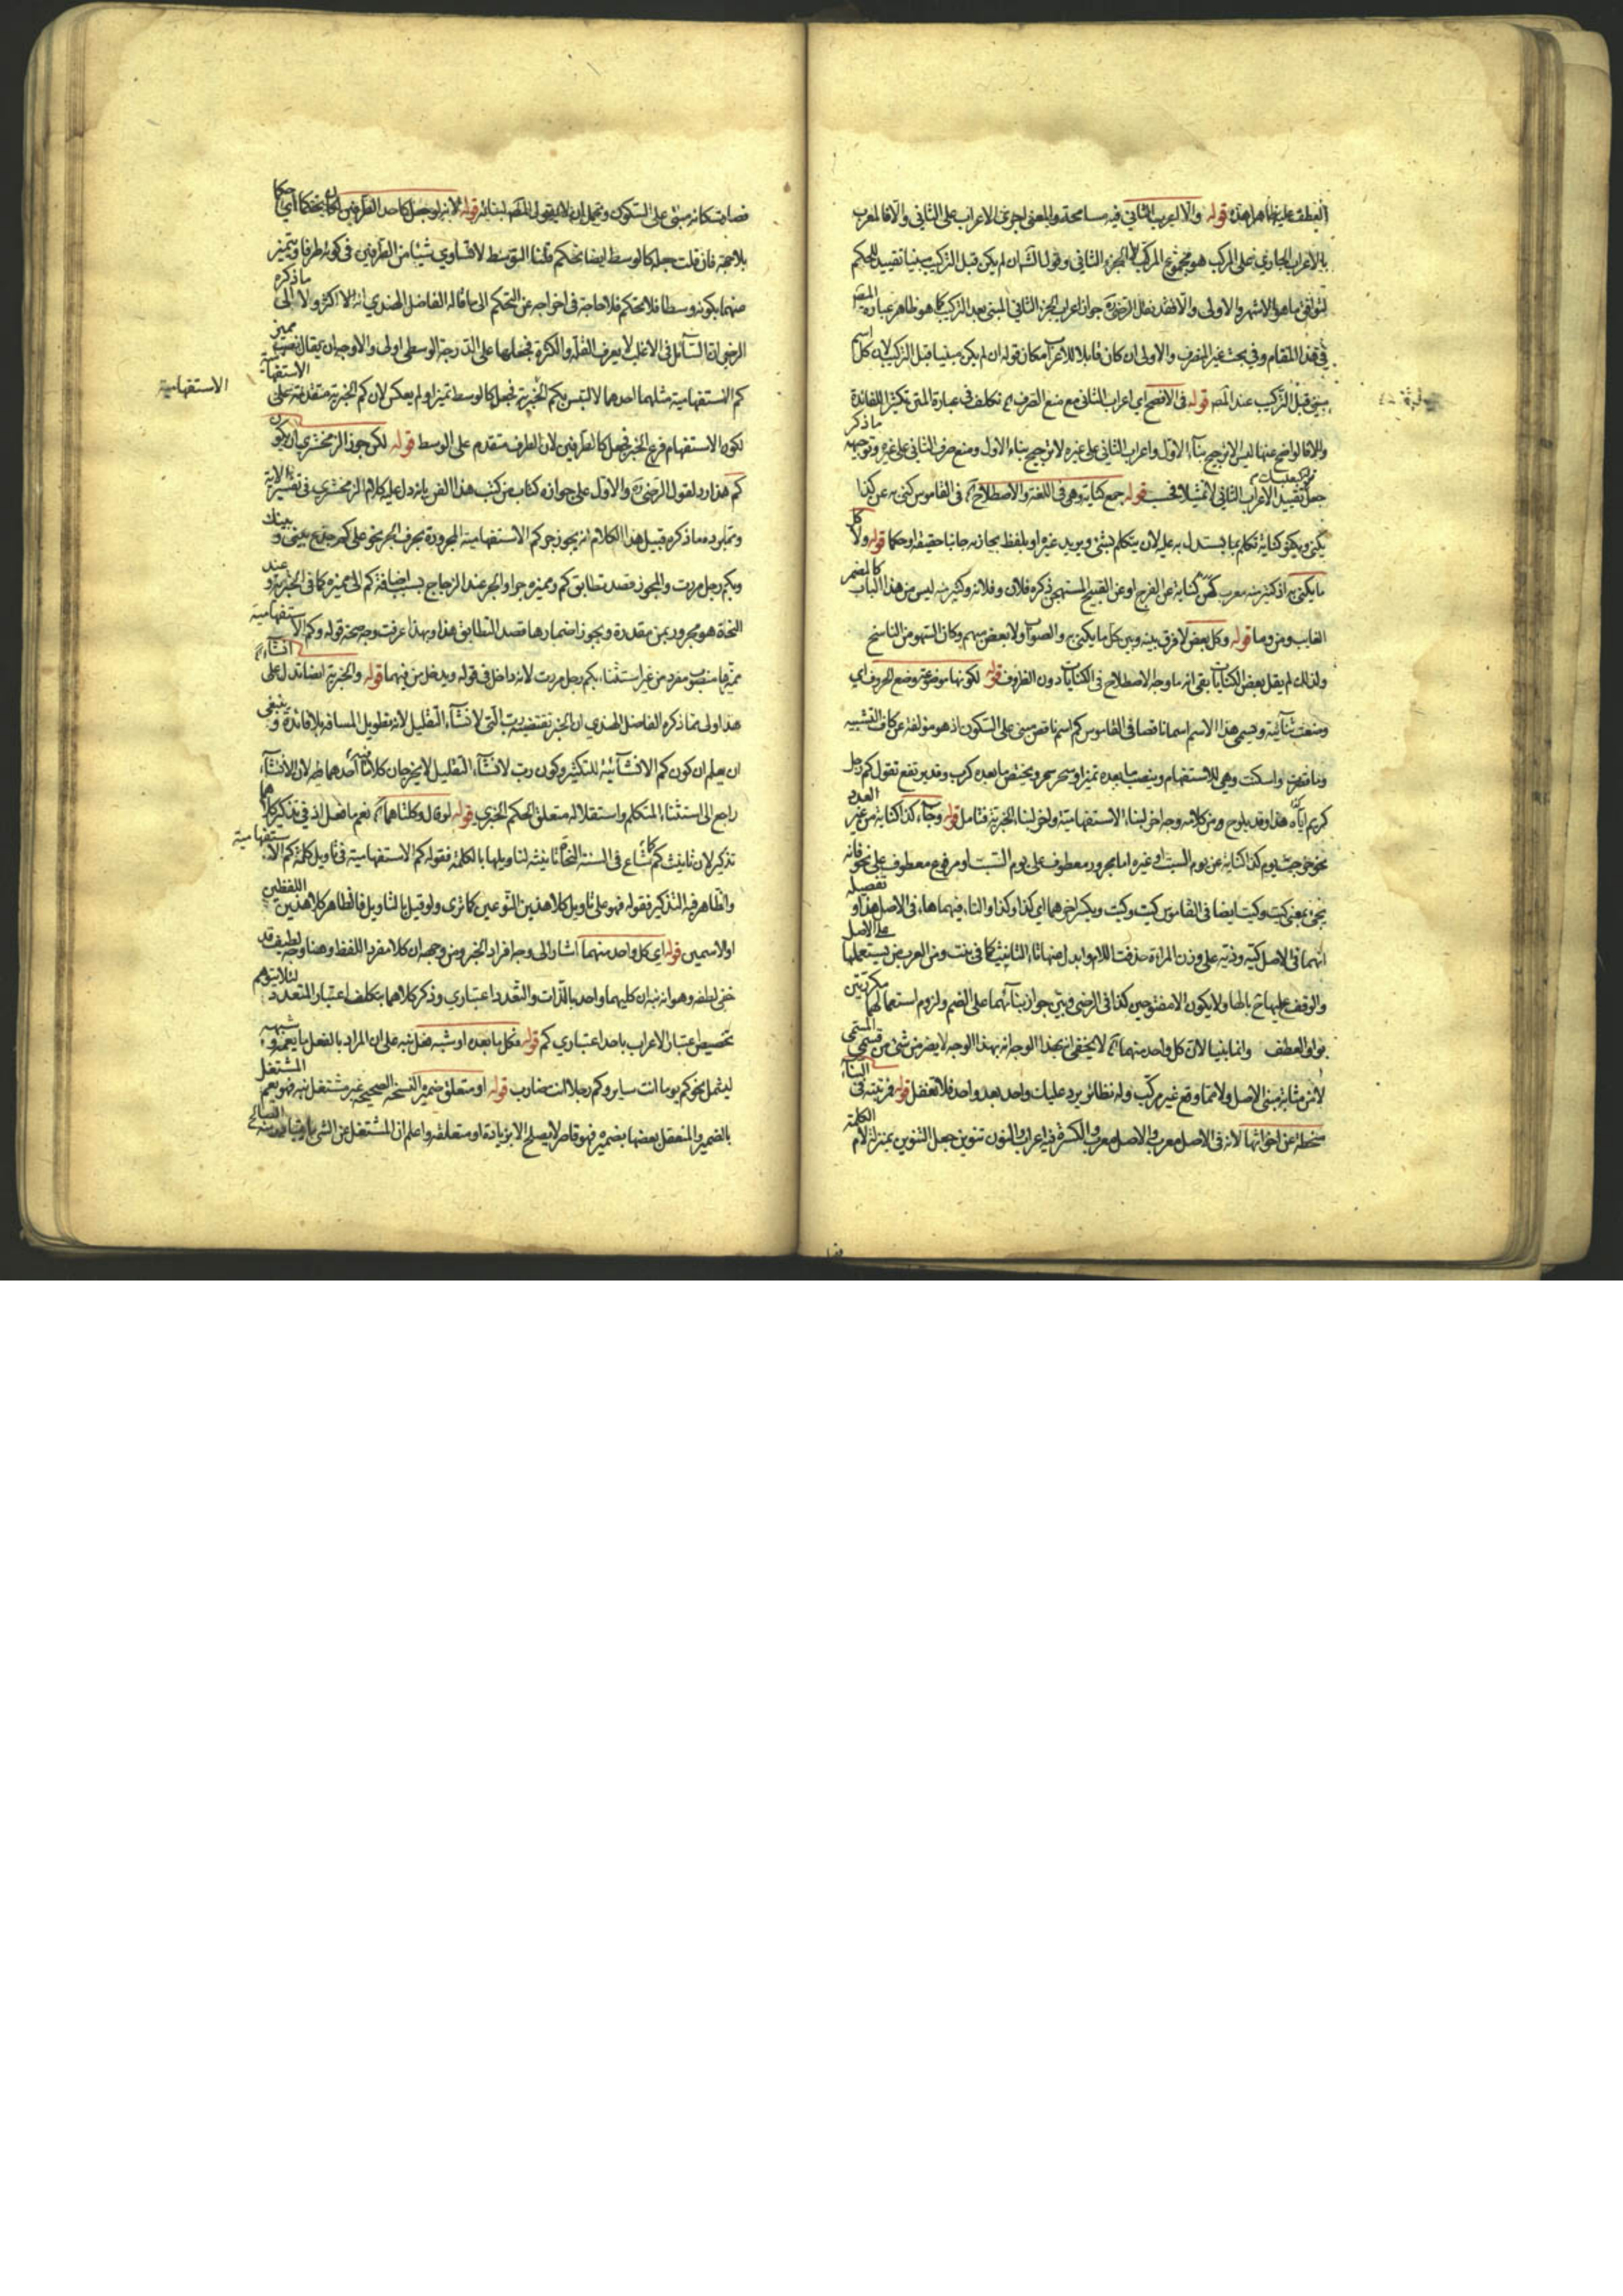 قوله والا اعرب الثاني فيه مسامحة والمعنى اجرى الاعراب على الثاني والا فالمعرب
بالاعراب الجاري على المركب هو مجموع المركب لا الجزء الثاني وقوله الثاني ان لم يكن قبل التركيب مبنيا تقييد للحكم
ليوافق ما هو الاشهر والاولى والا فقد نقل الرضي جواز اعراب الجزء الثاني المبني بعد التركيب كما هو ظاهر عبارة المص
في هذا المقام وفي بحث غير المنصرف والاولى ان كان قابلا للاعراب مكان قوله ان لم يكن مبنيا قبل التركيب لان كل اسم
مبني قبل التركيب عند المص قوله في الافصح اي اعراب الثاني مع منع الصرف تكلف في عبارة المتن تكثيرا للفائدة
والا فالواضح عنها ليس الا ترجيح بناء الاول واعراب الثاني على غيره لا ترجيح بناء الاول ومنع صرف الثاني على غيره وتوجيه ما ذكر
جعل تقييد الاعراب الثاني قوله جمع كناية وهي في اللغة والاصطلاح في القاموس كنى به عن كذا
يكني ويكنو كناية تكلم بما يستدل به عليه او ان يتكلم بشيء ويريد غيره او بلفظ يجاذبه جانبا حقيقة او حكما قوله ولا كل
ما يكنى به اذ كثير منه معرب كهن كناية عن الفرج او عن القبيح المستهجن ذكره فلان وفلانة وكثير منه ليس من هذا الباب كالضمير
الغايب ومن وما قوله وكل بعض لا فرق بينه وبين كل ما يكنى به والصواب ولا بعض مبهم وكان السهو من الناسخ
ولذلك لم يقل بعض الكنايات بقي انه ما وجه الاصطلاح في الكنايات دون الظروف قوله لكونها موضوعة وضع الحروف اي
وضعت ثنائية ويسمى هذا الاسم اسما ناقصا في القاموس كم اسم ناقص مبني على السكون او هو مؤلفة من كاف التشبيه
وما قصرت واسكنت وهي للاستفهام وينصب ما بعده تميزا وبخبر ويخفض ما بعده كرب وقد يرفع تقول كم رجل
كريم اتاني هذا وقد يلوح من كلامه وجه اخر لبناء الاستفهامية واخر لبناء الخبرية فتامل قوله وجاء كذا كناية من غير العدد
نحو خرجت يوم كذا كناية عن يوم السبت او غيره اما مجرور معطوف على يوم السبت او مرفوع معطوف على نحو فانه
يجيء بمعنى كيت وكيت ايضا في القاموس كيت وكيت ويكسر اخرهما اي كذا وكذا والتاء فيهما هاء في الاصل هذا وتفصيله
انهما في الاصل كية وذية على وزن المراة حذفت اللام وابدل منها تاء التانيث كما في بنت ومن العرب من يستعملها على الاصل
والوقف عليها ح بالهاء ولا يكون الا مفتوحين كذا في الرضي وبين جواز بنائهما على الضم ولزوم استعمالهما مكررتين
بواو العطف وانما بنيا لان كل واحد منهما لا يخفى ان بهذا الوجه لا يضر من شيء من قسمي المبني
لا من مشابه مبني الاصل ولا مما وقع غير مركب وله نظائر يرد عليك واحد بعد واحد فلا تغفل قوله فمرتبته في البناء
منحطة عن اخواتها لانه في الاصل معرب والاصل معرب والكسرة فيه اعراب والنون تنوين جعل التنوين بمنزلة لام الكلمة
فصار كانه مبني على السكون ويحتمل ان لا يقول المص لبنائه قوله لانه لو جعل كاحد الطرفين لكان تحكما اي حكما
بلا حجة فان قلت جعله كالوسط ايضا تحكم قلنا التوسط لا يساوي شيئا من الطرفين في كونه طرفا ويتميز
منهما بكونه وسطا فلا تحكم فلا حاجة في اخراجه عن التحكم الى ما قاله الفاضل الهندي انه لا اكثر ولا الى ما ذكره
الرضي ان السائل في الاغلب لا يعرف القلة والكثرة فجعلها على الدرجة الوسطى اولى والاوجه ان يقال نصب مميز
كم الاستفهامية مثلهما احدهما لالتبس بكم الخبرية فجعل كالوسط تميزا ولم يعكس لان كم الخبرية متقدمة على الاستفهامية
لكون الاستفهام فرع الخبر فجعل كالطرفين لان الطرف متقدم على الوسط قوله لكن جوز الزمخشري ان يكون
كم هذا رد لقول الرضي والاول على جوازه كتاب من كتب هذا الفن يانه دل عليه كلام الزمخشري في تفسير الاية
ومما يرده ما ذكره قبيل هذا الكلام انه يجوز جر كم الاستفهامية المجرورة بحرف الجر نحو على كم جذع بيتك
وبكم رجل مررت والمجوز قصد تطابق كم ومميزه جرا والجر عند الزجاج بسبب اضافة كم الى مميزه كما في الخبرية وعند
النحاة هو مجرور بمن مقدرة ويجوز اضمارها قصد التطابق هذا وبهذا عرفت وجه صحة قوله وكم الاستفهامية
مميزها منصوب مفرد من غير استثناء بكم رجل مررت لانه داخل في قوله ويدخل من فيهما قوله والخبرية ايضا تدل على انشاء
هذا اولى مما ذكره الفاضل الهندي ان الخبرية نقيضة رب التي لانشاء التقليل لانه تطويل المسافة بلا فائدة وينبغي
ان يعلم ان كون كم الانشائية للتكثير وكون رب لانشاء التقليل لا يخرجان كلاما فيه احدهما لان الانشاء
راجع الى استثناء المتكلم واستقلاله متعلق الحكم الخبري قوله لو قال وكلتاهما نعم ما فعل اذ في تذكير كلاهما
تذكير لان تانيث كم شاع في السنة النحاة تانيثه لتاويلها بالكلمة فقوله كم الاستفهامية في تاويل كلمة كم الاستفهامية
والظاهر فيه التذكير فقوله فهو على تاويل كلا هذين النوعين كما ترى ولو قيل بالتاويل فالظاهر كلا هذين اللفظين
او الاسمين قوله اي كل واحد منهما اشار الى وجه افراد الخبر ومن وجهه ان كلا مفرد اللفظ وههنا وجه لطيف قد
خفي لطفه وهو انه نبه ان كليهما واحد بالذات والتعدد اعتباري وذكر كلاهما بتكلف اعتبار المتعدد لئلا يتوهم
تخصيص اعتبار الاعراب باحد اعتباري كم قوله فكل ما بعده او شبه فعل نبه على ان المراد بالفعل ما يعمه وشبهه
ليشمل نحو كم يوما انت ساير وكم رجلا انت ضارب قوله او متعلق ضميره النسخة الصحيحة غير مشتغل عنه فهو يعم المشتغل
بالضمير والمنعقل بعضها بضميره فهو قاصر لا يصلح الا بزيادة او متعلقه واعلم ان المشتغل عن الشيء
الاستفهامية